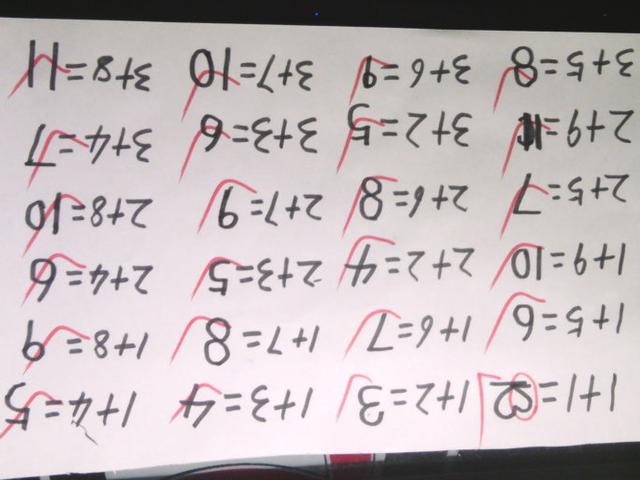 1+1=2 1+2=3 1+3=4 1+4=5
1+5=6 1+6=7 1+7=8 1+8=9
1+9=10 2+2=4 2+3=5 2+4=6
2+5=7 2+6=8 2+7=9 2+8=10
2+9=11 3+2=5 3+3=6 3+4=7
3+5=8 3+6=9 3+7=10 3+8=11